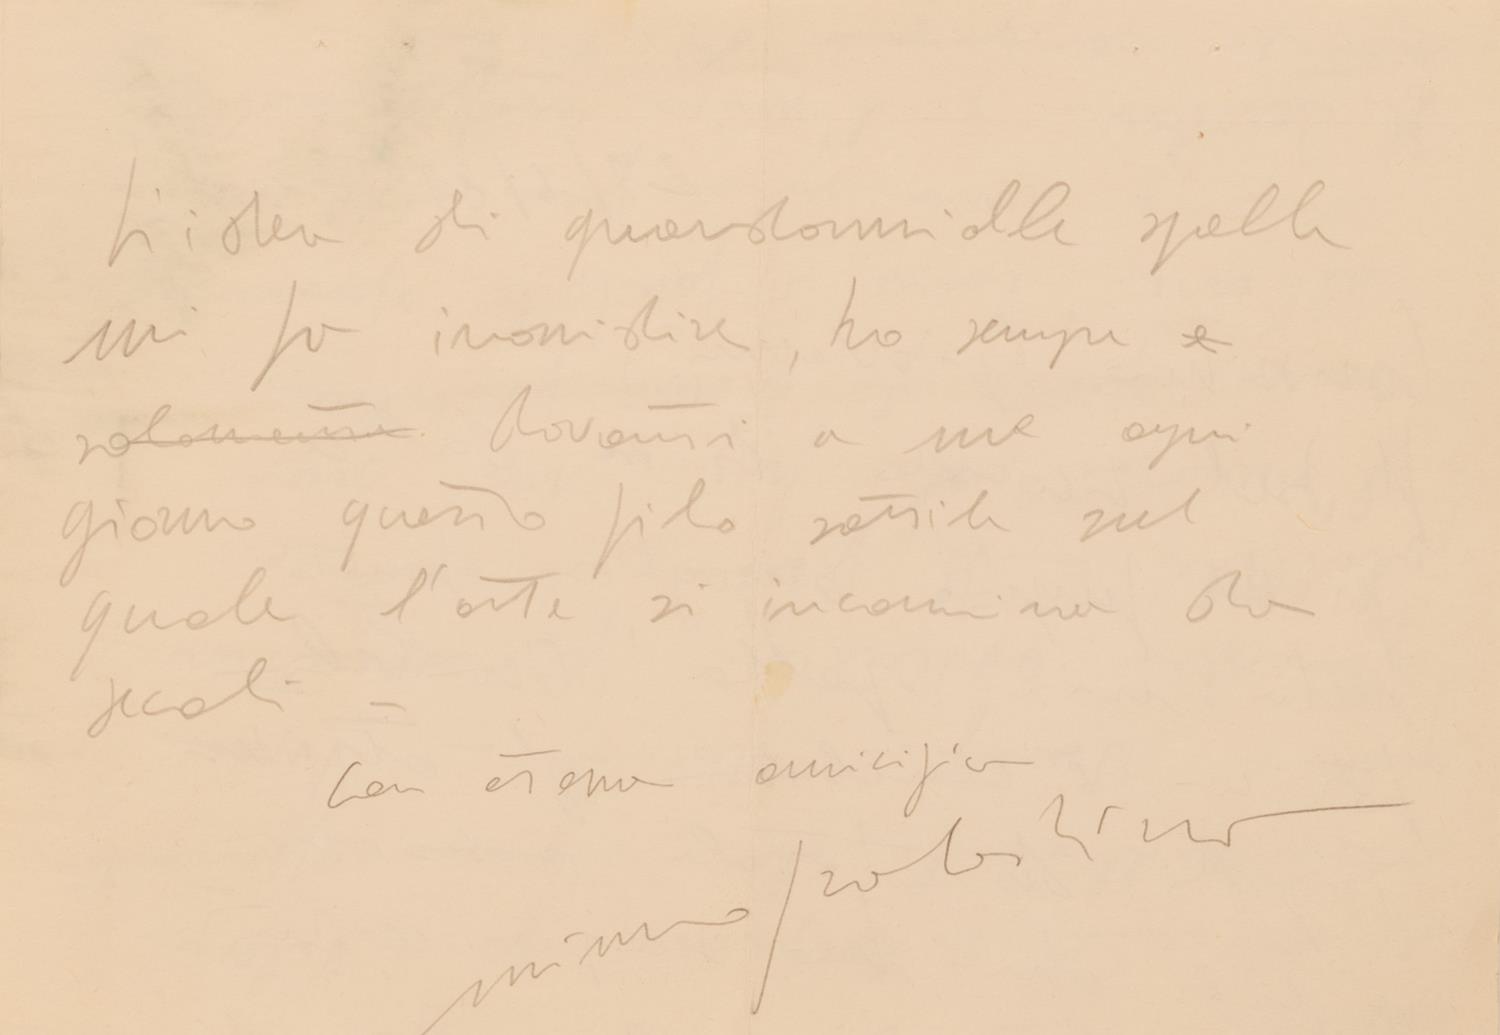 L'idea di guardarmi alle spalle
mi fa inorridire, ho sempre e
solamente davanti a me ogni
giorno questo filo sottile sul
quale l'arte si incammina da
secoli –
con amicizia
mimmo paladino